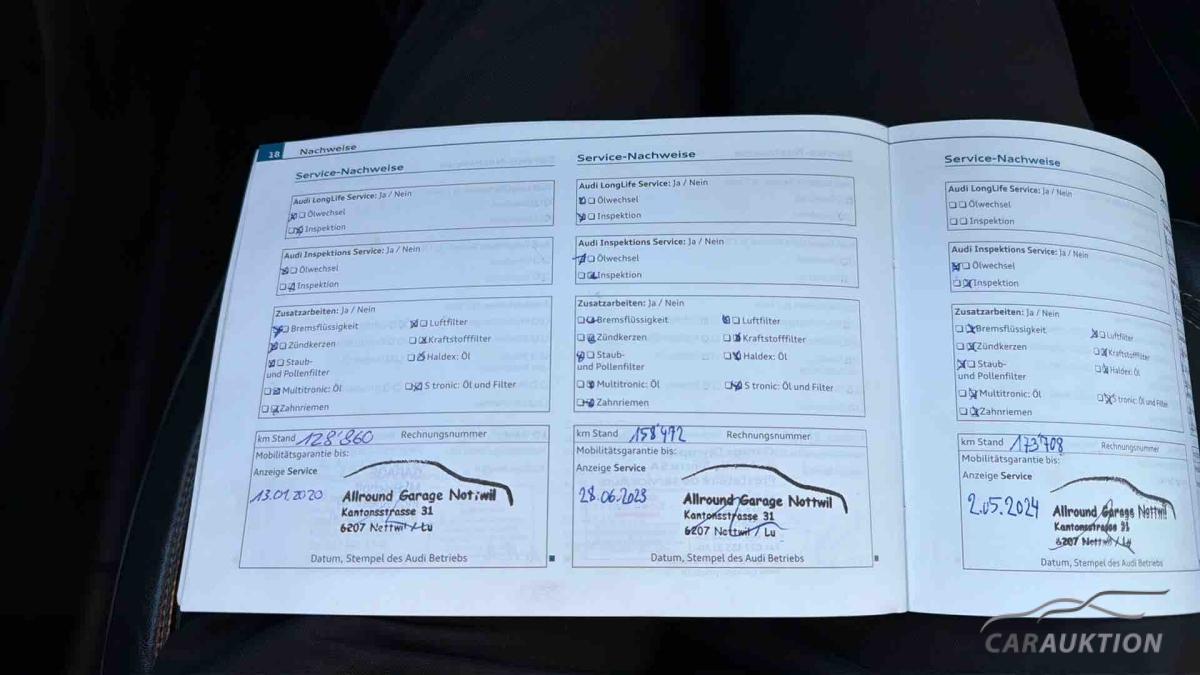 18
Nachweise
Service-Nachweise
Audi LongLife Service: Ja / Nein
Ölwechsel
Inspektion
Audi Inspektions Service: Ja / Nein
Ölwechsel
Inspektion
Zusatzarbeiten: Ja / Nein
Bremsflüssigkeit
Luftfilter
Zündkerzen
Kraftstofffilter
Staub-
und Pollenfilter
Haldex: Öl
Multitronic: Öl
S tronic: Öl und Filter
Zahnriemen
km Stand 128'860 Rechnungsnummer
Mobilitätsgarantie bis:
Anzeige Service
13.01.2020
Allround Garage Nottwil
Kantonsstrasse 31
6207 Nottwil / Lu
Datum, Stempel des Audi Betriebs
Service-Nachweise
Audi LongLife Service: Ja / Nein
Ölwechsel
Inspektion
Audi Inspektions Service: Ja / Nein
Ölwechsel
Inspektion
Zusatzarbeiten: Ja / Nein
Bremsflüssigkeit
Luftfilter
Zündkerzen
Kraftstofffilter
Staub-
und Pollenfilter
Haldex: Öl
Multitronic: Öl
S tronic: Öl und Filter
Zahnriemen
km Stand 158'472 Rechnungsnummer
Mobilitätsgarantie bis:
Anzeige Service
28.06.2023
Allround Garage Nottwil
Kantonsstrasse 31
6207 Nottwil / Lu
Datum, Stempel des Audi Betriebs
Service-Nachweise
Audi LongLife Service: Ja / Nein
Ölwechsel
Inspektion
Audi Inspektions Service: Ja / Nein
Ölwechsel
Inspektion
Zusatzarbeiten: Ja / Nein
Bremsflüssigkeit
Luftfilter
Zündkerzen
Kraftstofffilter
Staub-
und Pollenfilter
Haldex: Öl
Multitronic: Öl
S tronic: Öl und Filter
Zahnriemen
km Stand 173'708 Rechnungsnummer
Mobilitätsgarantie bis:
Anzeige Service
2.05.2024
Allround Garage Nottwil
Kantonsstrasse 31
6207 Nottwil / Lu
Datum, Stempel des Audi Betriebs
CARAUKTION